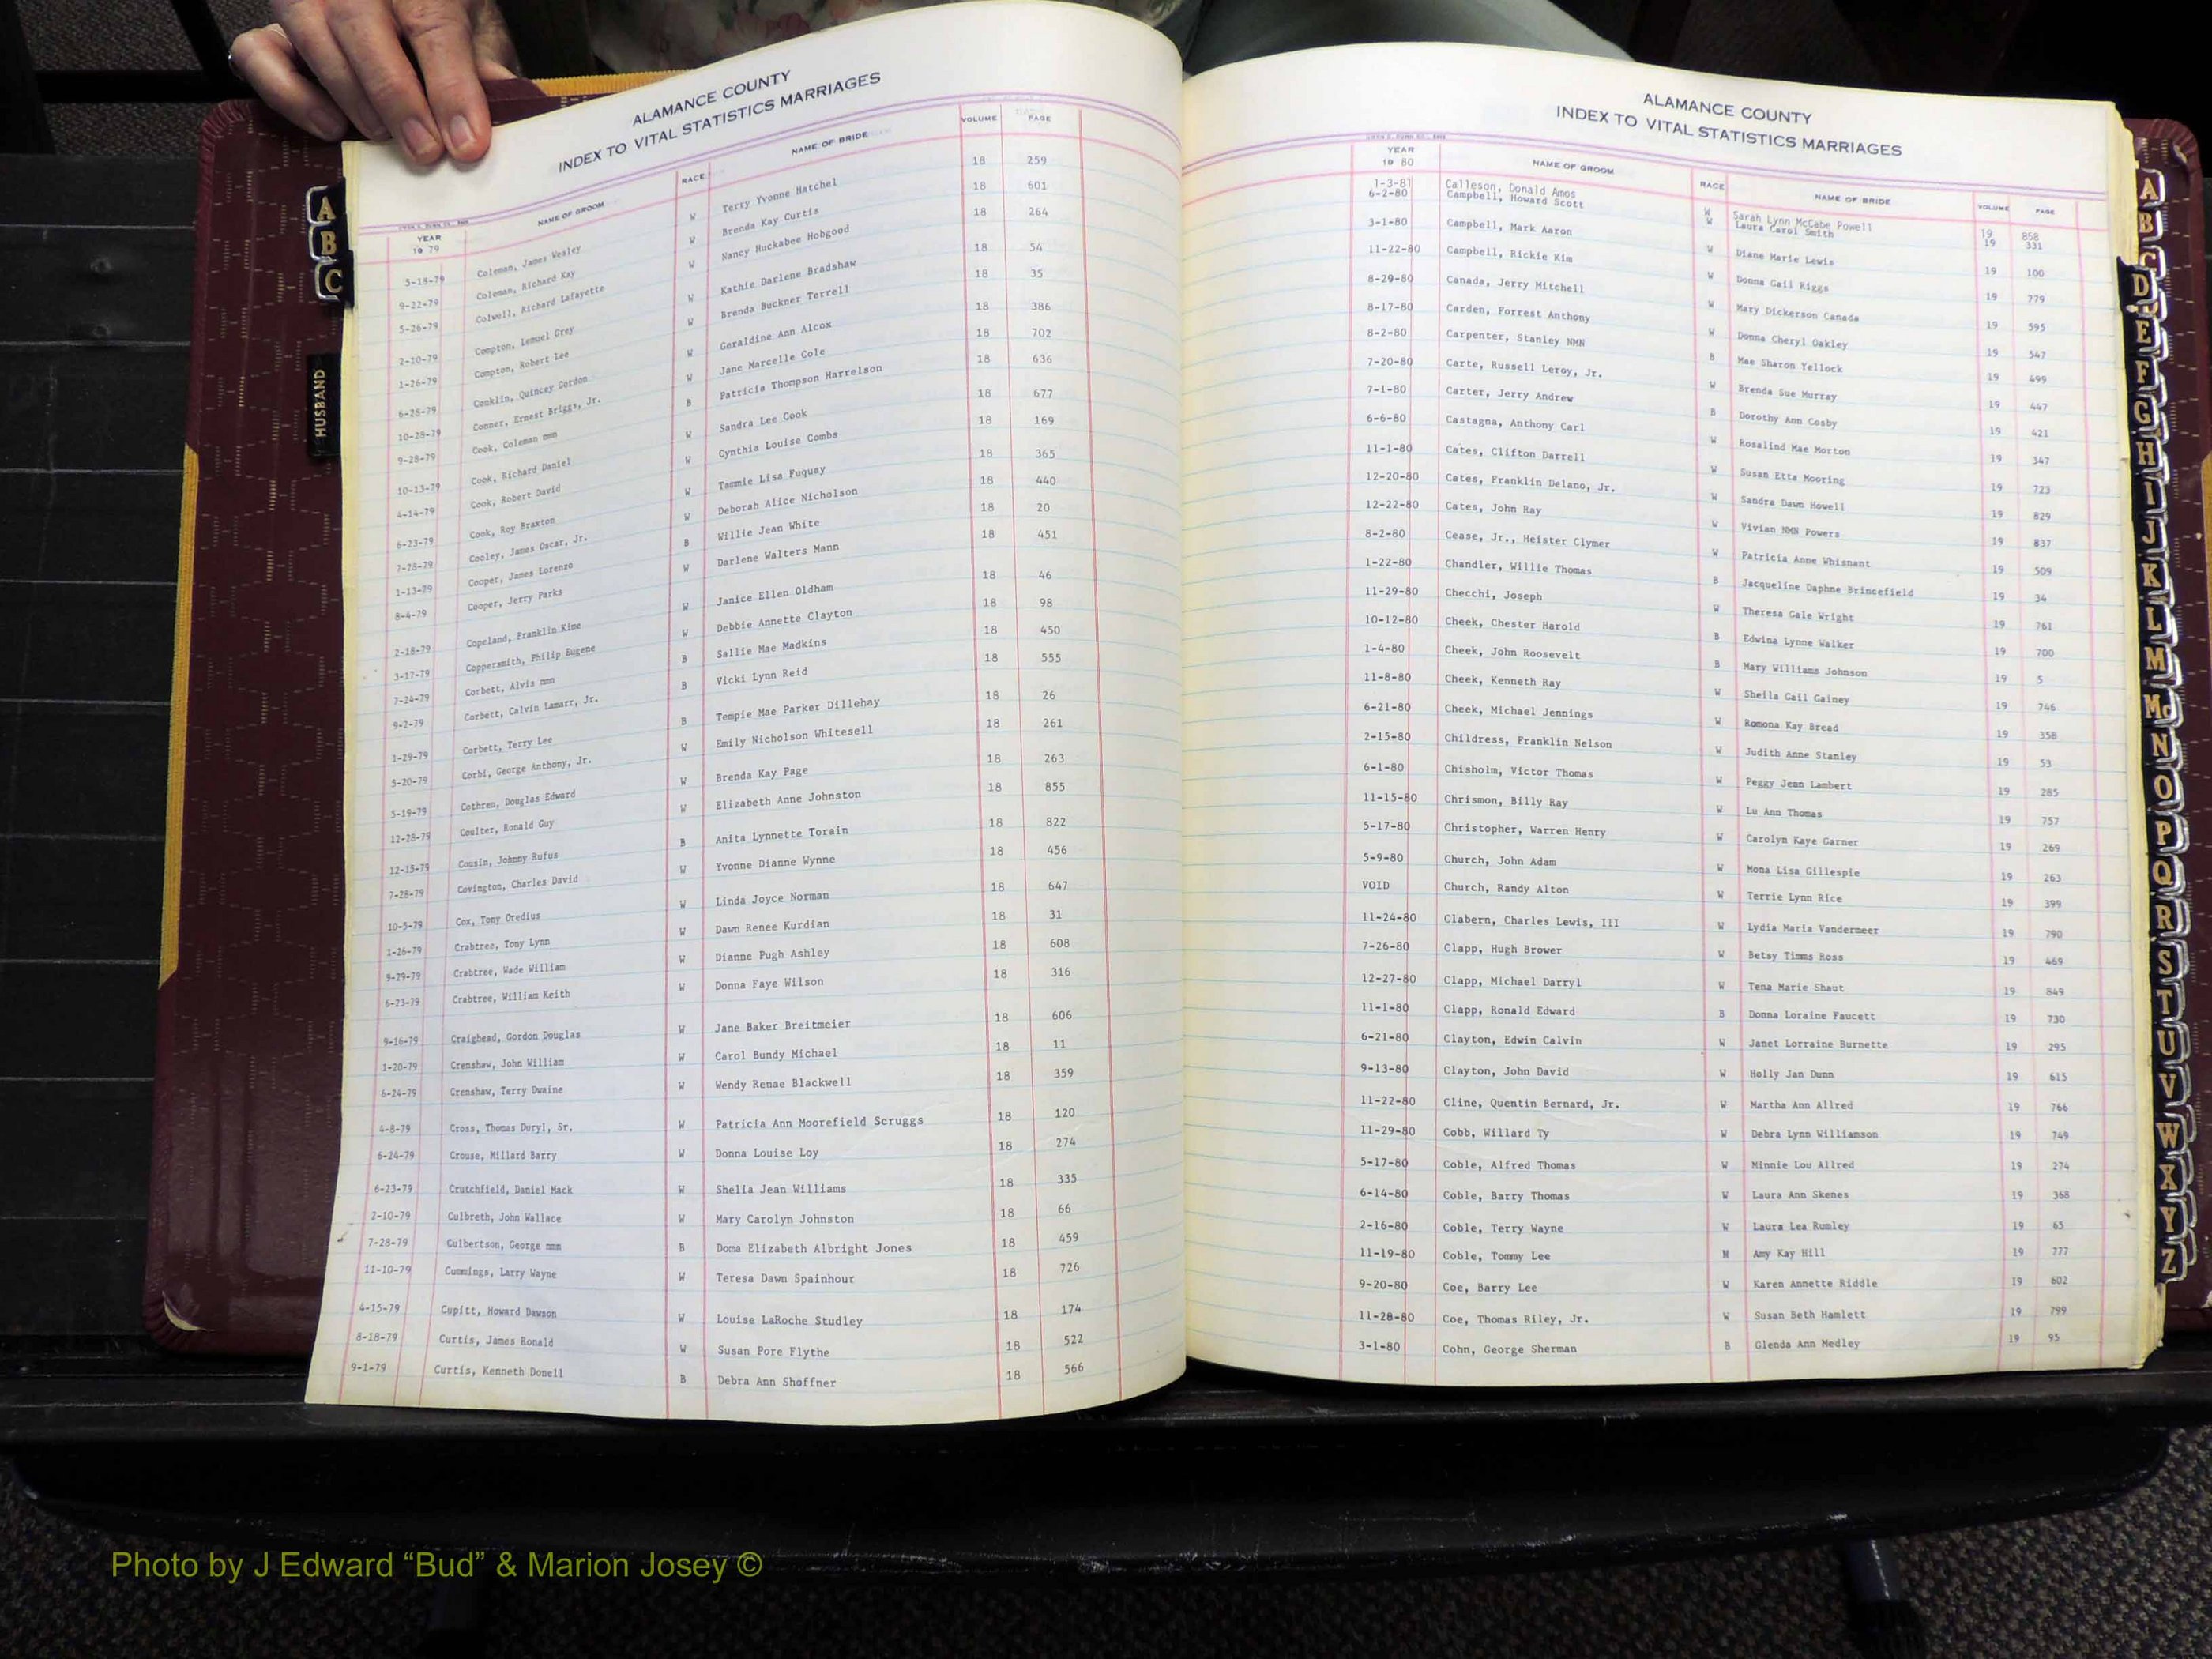 ALAMANCE COUNTY
INDEX TO VITAL STATISTICS MARRIAGES
YEAR 1979 NAME OF GROOM RACE NAME OF BRIDE VOLUME PAGE
5-18-79 Coleman, James Wesley W Terry Yvonne Hatchel 18 259
9-22-79 Coleman, Richard Kay W Brenda Kay Curtis 18 601
5-26-79 Colwell, Richard Lafayette W Nancy Huckabee Hobgood 18 264
2-10-79 Compton, Lemuel Grey W Kathie Darlene Bradshaw 18 54
1-26-79 Compton, Robert Lee W Brenda Buckner Terrell 18 35
6-28-79 Conklin, Quincey Gordon W Geraldine Ann Alcox 18 386
10-28-79 Conner, Ernest Briggs, Jr. W Jane Marcelle Cole 18 702
9-28-79 Cook, Coleman nmn B Patricia Thompson Harrelson 18 636
10-13-79 Cook, Richard Daniel W Sandra Lee Cook 18 677
4-14-79 Cook, Robert David W Cynthia Louise Combs 18 169
6-23-79 Cook, Roy Braxton W Tammie Lisa Fuquay 18 365
7-28-79 Cooley, James Oscar, Jr. W Deborah Alice Nicholson 18 440
1-13-79 Cooper, James Lorenzo B Willie Jean White 18 20
8-4-79 Cooper, Jerry Parks W Darlene Walters Mann 18 451
2-18-79 Copeland, Franklin Kime W Janice Ellen Oldham 18 46
3-17-79 Coppersmith, Philip Eugene W Debbie Annette Clayton 18 98
7-24-79 Corbett, Alvis nmn B Sallie Mae Madkins 18 450
9-2-79 Corbett, Calvin Lamarr, Jr. B Vicki Lynn Reid 18 555
1-29-79 Corbett, Terry Lee B Tempie Mae Parker Dillehay 18 26
5-20-79 Corbi, George Anthony, Jr. W Emily Nicholson Whitesell 18 261
5-19-79 Cothren, Douglas Edward W Brenda Kay Page 18 263
12-28-79 Coulter, Ronald Guy W Elizabeth Anne Johnston 18 855
12-15-79 Cousin, Johnny Rufus B Anita Lynnette Torain 18 822
7-28-79 Covington, Charles David W Yvonne Dianne Wynne 18 456
10-5-79 Cox, Tony Oredius W Linda Joyce Norman 18 647
1-26-79 Crabtree, Tony Lynn W Dawn Renee Kurdian 18 31
9-29-79 Crabtree, Wade William W Dianne Pugh Ashley 18 608
6-23-79 Crabtree, William Keith W Donna Faye Wilson 18 316
9-16-79 Craighead, Gordon Douglas W Jane Baker Breitmeier 18 606
1-20-79 Crenshaw, John William W Carol Bundy Michael 18 11
6-24-79 Crenshaw, Terry Dwaine W Wendy Renae Blackwell 18 359
4-8-79 Cross, Thomas Duryl, Sr. W Patricia Ann Moorefield Scruggs 18 120
6-24-79 Crouse, Millard Barry W Donna Louise Loy 18 274
6-23-79 Crutchfield, Daniel Mack W Shelia Jean Williams 18 335
2-10-79 Culbreth, John Wallace W Mary Carolyn Johnston 18 66
7-28-79 Culbertson, George nmn B Doma Elizabeth Albright Jones 18 459
11-10-79 Cummings, Larry Wayne W Teresa Dawn Spainhour 18 726
4-15-79 Cupitt, Howard Dawson W Louise LaRoche Studley 18 174
8-18-79 Curtis, James Ronald W Susan Pore Flythe 18 522
9-1-79 Curtis, Kenneth Donell B Debra Ann Shoffner 18 566
ALAMANCE COUNTY
INDEX TO VITAL STATISTICS MARRIAGES
YEAR 1980 NAME OF GROOM RACE NAME OF BRIDE VOLUME PAGE
1-3-81 Calleson, Donald Amos W Sarah Lynn McCabe Powell 19 858
6-2-80 Campbell, Howard Scott W Laura Carol Smith 19 331
3-1-80 Campbell, Mark Aaron W Diane Marie Lewis 19 100
11-22-80 Campbell, Rickie Kim W Donna Gail Riggs 19 779
8-29-80 Canada, Jerry Mitchell W Mary Dickerson Canada 19 595
8-17-80 Carden, Forrest Anthony W Donna Cheryl Oakley 19 547
8-2-80 Carpenter, Stanley NMN B Mae Sharon Yellock 19 499
7-20-80 Carte, Russell Leroy, Jr. W Brenda Sue Murray 19 447
7-1-80 Carter, Jerry Andrew B Dorothy Ann Cosby 19 421
6-6-80 Castagna, Anthony Carl W Rosalind Mae Morton 19 347
11-1-80 Cates, Clifton Darrell W Susan Etta Mooring 19 723
12-20-80 Cates, Franklin Delano, Jr. W Sandra Dawn Howell 19 829
12-22-80 Cates, John Ray W Vivian NMN Powers 19 837
8-2-80 Cease, Jr., Heister Clymer W Patricia Anne Whisnant 19 509
1-22-80 Chandler, Willie Thomas B Jacqueline Daphne Brincefield 19 34
11-29-80 Checchi, Joseph W Theresa Gale Wright 19 761
10-12-80 Cheek, Chester Harold B Edwina Lynne Walker 19 700
1-4-80 Cheek, John Roosevelt B Mary Williams Johnson 19 5
11-8-80 Cheek, Kenneth Ray W Sheila Gail Gainey 19 746
6-21-80 Cheek, Michael Jennings W Romona Kay Bread 19 358
2-15-80 Childress, Franklin Nelson W Judith Anne Stanley 19 53
6-1-80 Chisholm, Victor Thomas W Peggy Jean Lambert 19 285
11-15-80 Chrismon, Billy Ray W Lu Ann Thomas 19 757
5-17-80 Christopher, Warren Henry W Carolyn Kaye Garner 19 269
5-9-80 Church, John Adam W Mona Lisa Gillespie 19 263
VOID Church, Randy Alton W Terrie Lynn Rice 19 399
11-24-80 Clabern, Charles Lewis, III W Lydia Maria Vandermeer 19 790
7-26-80 Clapp, Hugh Brower W Betsy Timms Ross 19 469
12-27-80 Clapp, Michael Darryl W Tena Marie Shaut 19 849
11-1-80 Clapp, Ronald Edward B Donna Loraine Faucett 19 730
6-21-80 Clayton, Edwin Calvin W Janet Lorraine Burnette 19 295
9-13-80 Clayton, John David W Holly Jan Dunn 19 615
11-22-80 Cline, Quentin Bernard, Jr. W Martha Ann Allred 19 766
11-29-80 Cobb, Willard Ty W Debra Lynn Williamson 19 749
5-17-80 Coble, Alfred Thomas W Minnie Lou Allred 19 274
6-14-80 Coble, Barry Thomas W Laura Ann Skenes 19 368
2-16-80 Coble, Terry Wayne W Laura Lea Rumley 19 65
11-19-80 Coble, Tommy Lee W Amy Kay Hill 19 777
9-20-80 Coe, Barry Lee W Karen Annette Riddle 19 602
11-28-80 Coe, Thomas Riley, Jr. W Susan Beth Hamlett 19 799
3-1-80 Cohn, George Sherman B Glenda Ann Medley 19 95
A
B
C
HUSBAND
A
B
C
D
E
F
G
H
I
J
K
L
M
Mc
N
O
P
Q
R
S
T
U
V
W
X
Y
Z
Photo by J Edward “Bud” & Marion Josey ©